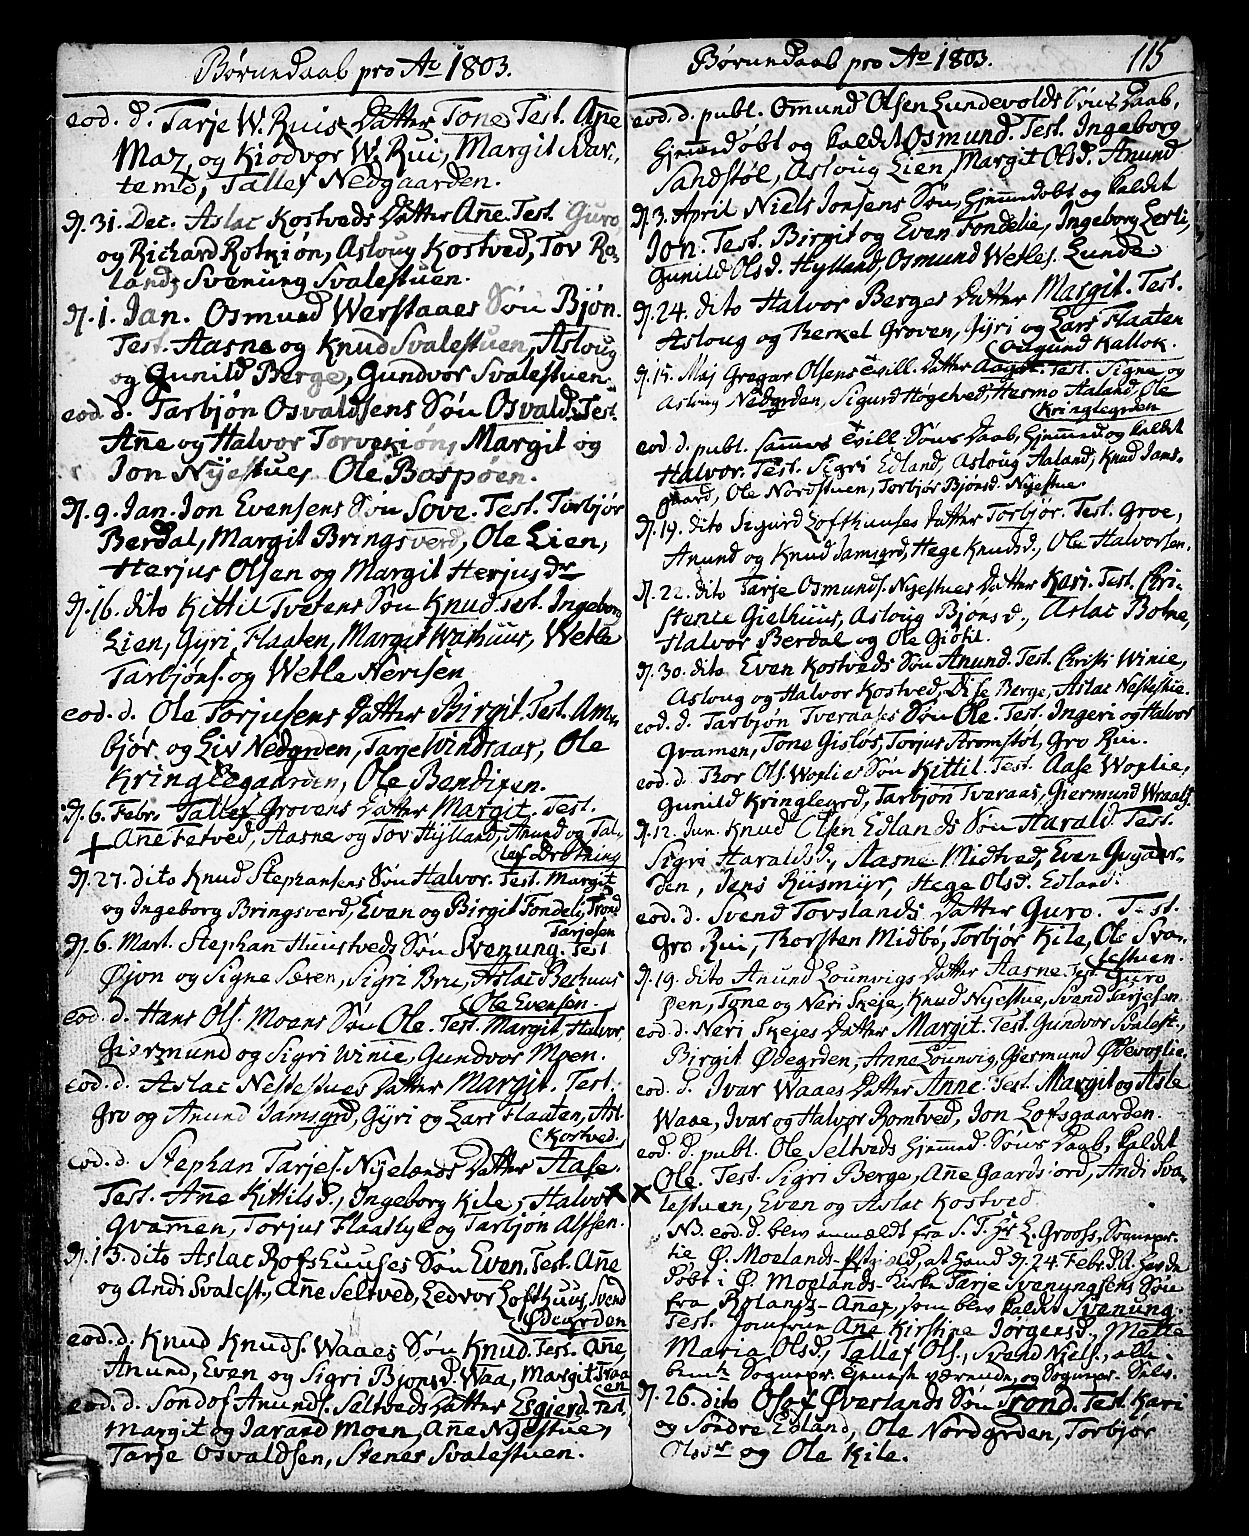 Børnedaab pro Ao 1803.
eod. d. Tarje W. Ruis Datter Tone. Test. Añe
Maz, og Kiodvor W. Rui, Margit Nar-
temo, Tallef Nedgaarden.
D. 31. Dec. Aslac Kostveds Datter Añe. Test. Guro
og Richard Rotkiøn, Asloug Kostved, Tov Ro-
land, Svenung Svalestuen.
D. 1. Jan. Osmund Werstaaes Søn Bjøn.
Test. Aasne og Knud Svalestuen, Asloug
og Gunild Berge, Gundvor Svalestuen.
eod. d. Tarbjøn Osvaldsens Søn Osvald. Test.
Añe og Halvor Torvekiøn, Margit og
Jon Nyestues, Ole Baspøen.
D. 9. Jan. Jon Evensens Søn Sove. Test. Torbjør
Berdal, Margit Bringsverd, Ole Lien,
Herjus Olsen og Margit Herjusdr
D. 16. dito Kittil Tvetens Søn Knud. Test. Ingeborg
Lien, Gyri Flaaten, Margit Wathuus, Wetle
Tarbjøns. og Wetle Nerisen
eod. d. Ole Torjusens Datter Birgit. Test. Am-
bjør og Liv Nedgrden, Tarje Windsaas, Ole
Kringlegaarden, Ole Bendixen.
D. 6. Febr. Tallef Grovens Datter Margit. Test.
Añe Fetved, Aasne og Tov Hylland, Anund og Tal-
lef Drotning
D. 27. dito Knud Stephansens Søn Halvor. Test. Margit
og Ingeborg Bringsverd, Even og Birgit Fondeli, Trond
Tarjesen
D. 6. Mart. Stephan Huustveds Søn Svenung. Test
Øjon og Signe Særen, Sigri Bru, Aslac Berhuus
Ole Evensen.
eod. d. Hans Ols. Moens Søn Ole. Test. Margit, Halvor,
Giermund og Sigri Winie, Gundvor Moen.
eod. d. Aslac Nestestues Datter Margit. Test.
Gro og Anund Jamsgrd, Gyri og Lars Flaaten, Asl.
Kostved
eod. d. Stephan Tarjes. Nyelands Datter Aase.
Test. Añe Kittilsd., Ingeborg Kile, Halvor
Qvamen, Torjus Flaatlye og Tarbjøn Alfsen.
D. 13. dito Aslac Rofshuuses Søn Even. Test. Añe
og Andi Svalest., Añe Seltved, Ledvor Lofthuus, Svend
Ødegrden
eod. d. Knud Knuds. Waaes Søn Knud. Test. Añe,
Anund, Even og Sigri Bjonsd. Waa, Margit Traa-
en
eod. d. Sondof Anunds. Seltveds Datter Esgierd. Test.
Margit og Jarand Moen, Añe Nyestue,
Tarje Osvaldsen, Stenes Svalestuen.
Børnedaab pro Ao 1803. 115
eod. d. publ. Omund Olsen Lundevolds Søns Daab,
Hjemmedøbt og kaldet Osmund. Test. Ingeborg
Sandstøl, Asloug Lien, Margit Olsd. Anund
D. 3. April Niels Jonsens Søn, Hjemmedøbt og kaldet
Jon. Test. Birgit og Even Fondelie, Ingeborg Lertli,
Gunild Olsd. Hylland, Osmund Wetles. Lunde
D. 24. dito Halvor Berges Datter Margit. Test.
Asloug og Terkel Groven, Gyri og Lars Flaaten
Osmund Kallok.
D. 15. Maj Gregar Olsens Tvill. Datter Aagot. Test. Signe og
Asloug Nedgrden, Sigurd Høgetved, Hermo Aaland, Ole
Kringlegrden
eod. d. publ. sammes Tvill. Søns Daab, Hjemmed og kaldet
Halvor. Test. Sigri Edland, Asloug Aaland, Knud Jams-
gaard, Ole Nordstuen, Torbjør Bjønsd. Nyestue.
D. 19. dito Sigurd Lofthuuses Datter Torbjør. Test. Groe,
Anund og Knud Jamsgrd, Hege Knudsd., Ole Halvorsen.
D. 22. dito Tarje Osmunds. Nyestues Datter Kari. Test. Chri-
stence Gielhuus, Asloug Bjonsd., Aslac Botne,
Halvor Berdal og Ole Giøtil.
D. 30. dito Even Kostveds Søn Anund. Test. Christi Winie,
Asloug og Halvor Kostved, Dise Berge, Aslac Nestestue.
eod. d. Tarbjøn Tveraases Søn Ole. Test. Ingeri og Halvor
Qvamen, Tone Gisløs, Torjus Strømstøl, Gro Rui.
eod. d. Thor Ols. Woplies Søn Kittil. Test. Aase Woplie,
Gunild Kringlegrd, Tarbjøn Tveraas, Giermund Wraalj.
D. 12. Jun. Knud Olsen Edlands Søn Harald. Test.
Sigri Haraldsd., Aasne Midtved, Even Gugaar-
den, Jens Riismyr, Hege Olsd. Edland.
eod. d. Svend Tovslands Datter Guro. Test.
Gro Rui, Thorsten Midbø, Torbjør Kile, Ole Sva-
lestuen.
D. 19. dito Anund Lounvigs Datter Aasne. Test. Guro
Øen, Tone og Neri Skeje, Knud Nyestue, Svand Tarjesen
eod. d. Neri Skejes Datter Margit. Test. Gundvor Svalest.,
Birgit Ødegrden, Anne Lounvig, Giermund Ødevoglie.
eod. d. Ivar Waaes Datter Anne. Test. Margit og Asle
Waae, Ivar og Halvor Romtved, Jon Lofsgaarden.
eod. d. publ. Ole Seltveds Hjemmed Søns Daab, kaldet
Ole. Test. Sigri Berge, Añe Gaardsjord, Andi Sva-
lestuen, Even og Aslac Kostved
NB. eod. d. blev anmældt fra S. T. Hr L. Grooss, Sognepr.
til Ø. Moelands Pstgield, at Hand D. 24. Febr. d. A. havde
døbt i Ø. Moelands Kirke Tarje Svenungsens Søn
fra Rolands-Anex, som blev kaldet Svenung.
Test. Jomfrue Ane Kirstine Jørgensd., Mette
Maria Olsd., Tallef Ols., Svand Niels., alle
bemte Sognepr. tieneste værende, og Sognepr. Selv.
D. 26. dito Olof Øverlands Søn Trond. Test. Kari
og Søndre Edland, Ole Nordgrden, Torbjør
Olsdr og Ole Kile.